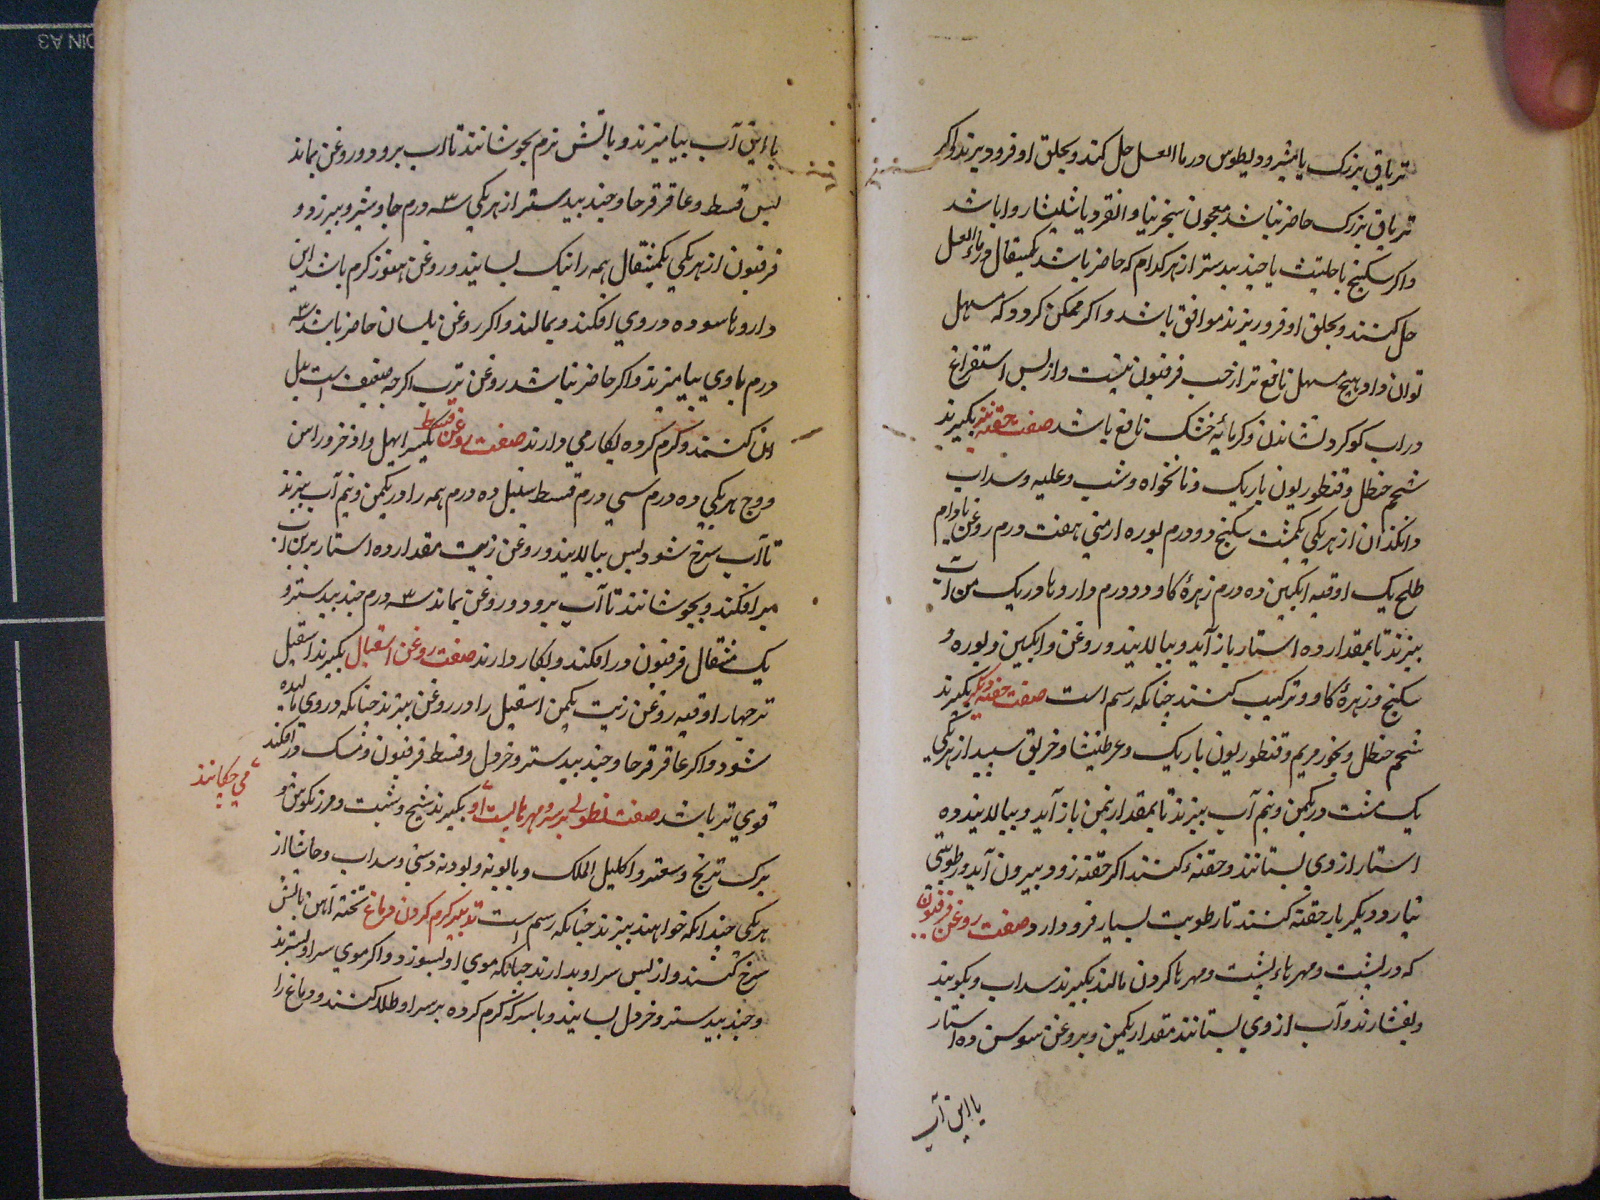 تریاق بزرک یا مثرودیطوس در ماء العسل حل کند و بحلق او فرود یزند واکر
تریاق بزرک حاضر نباشد معجون سنجرینا و انقردیا شلیثا روا باشد
واکر سکبنج یا حلتیت یا جند بیدستر از هر کدام که حاضر باشد یکمثقال در ماء العسل
حل کنند و بحلق او فرو ریزند موافق باشد واکر ممکن کردد که مسهل
توان داد هیچ مسهل نافع تر از حب فرفیون نیست و از پس استفراغ
در اب کوکرد نشاندن و کرمابه خشک نافع باشد صفت حقنه تیز بکیرند
شحم حنظل و قنطوریون باریک و نانخواه و شب و حلبه و سداب
و انکدان از هر یکی یکمشت سکبنج دو درم بوره ارمنی هفت درم روغن بادام
طلخ یک اوقیه انکبین ده درم زهرهٔ کاو دو درم داروها در یک من اب
بپزند تا بمقدار ده استار باز آید و بپالایند و روغن و انکبین و بوره و
سکبنج و زهرهٔ کاو و ترکیب کنند چنانکه رسم است صفت حقنه دیکر بکیرند
شحم حنظل و بخور مریم و قنطوریون باریک و عرطنیثا و خربق سپید از هر یکی
یک مشت در یکمن و نیم آب بپزند تا بمقدار نیمن باز آید و بپالایند و ده
استار از وی بستانند و حقنه کنند اکر حقنه زود بیرون آید و رطوبتی
نیارد دیکر بار حقنه کنند تا رطوبت بسیار فرود آرد صفت روغن فرفیون
که در پشت و مهرهاء پشت و مهرها کردن مالند بکیرند سداب و بکوبند
و بفشارند و آب از وی بستانند مقدار یکمن و بروغن سوسن ده استار
با این آب
با این آب بیامیزند و باتش نرم بجوشانند تا اب برود و روغن بماند
پس قسط و عاقر قرحا و جند بیدستر از هر یکی سه درم جاوشیر و بیرزد و
فرفیون از هر یکی یکمثقال همه را نیک بسایند و روغن هنوز کرم باشد این
داروها سوده در وی افکند و بمالند واکر روغن بلسان حاضر باشد سه
درم با وی بیامیزند واکر حاضر نباشد روغن ترب اکرچه ضعیف است بدل
ان کنند و کرم کرده بکار می دارند صفت روغن قسط بکیرند ابهل و اذخر و راسن
و وج هر یکی ده درم سی درم قسط سنبل ده درم همه را در یکمن و نیم آب بپزند
تا آب سرخ شود پس بپالایند و روغن زیت مقدار ده استار برین اب
بر افکند و بجوشانند تا آب برود و روغن بماند سه درم جند بیدستر و
یک مثقال فرفیون در افکند و بکار دارند صفت روغن اسقیل بکیرند اسقیل
تر چهار اوقیه روغن زیت یکمن اسقیل را در روغن بپزند چنانکه در وی پالیده
شود واکر عاقر قرحا و جند بیدستر و خردل و قسط فرفیون و مشک در افکند
قوی تر باشد صفت نطولی بر سر و مهرها پشت او بکیرند شیح و شبت و مرزنکوش و
می چکانند
برک ترنج و سعتر و اکلیل الملک و بابونه و پودنه دشتی و سداب و حاشا از
هر یکی چندانکه خواهند بپزند چنانکه رسم است تدبیر کرم کردن دماغ تخته آهن باتش
سرخ کنند و از پس سر او بدارند چنانکه موی او بسوزد واکر موی سر او بسترند
و جند بیدستر و خردل بسایند و با سرکه کرم کرده بر سر او طلا کنند و دماغ را